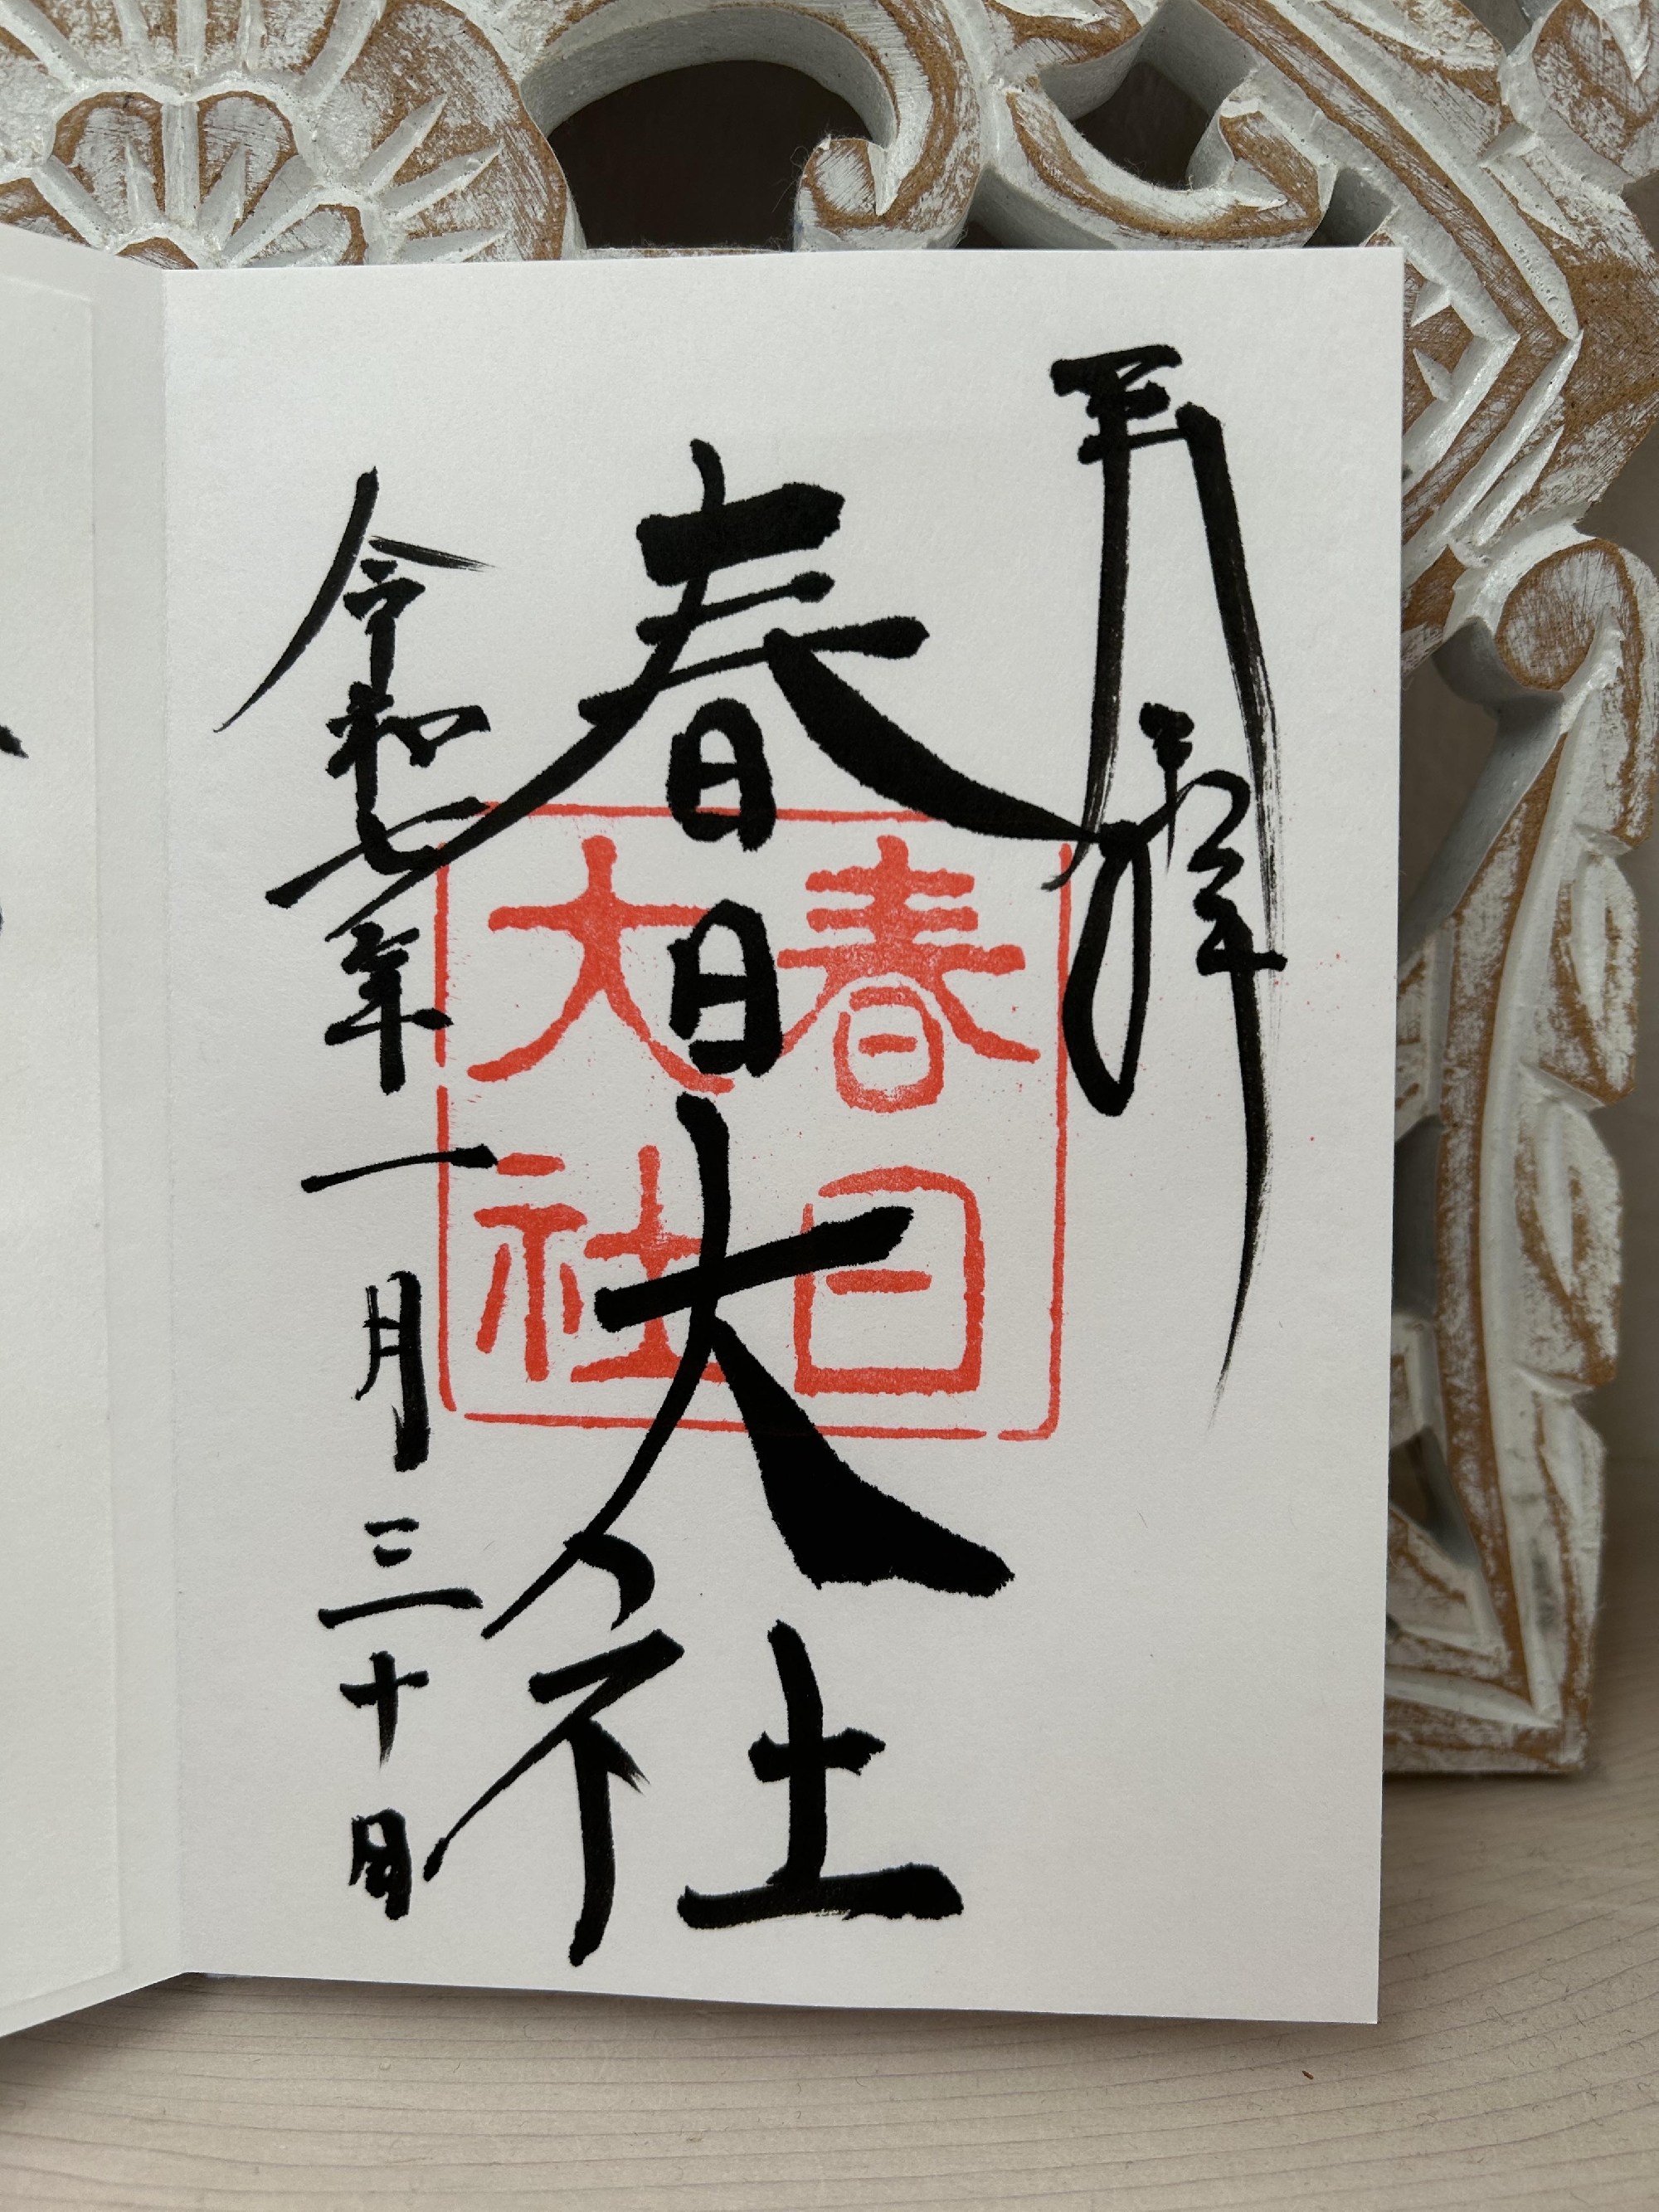 奉拝
春日大社
春日
大社
令和七年一月三十日